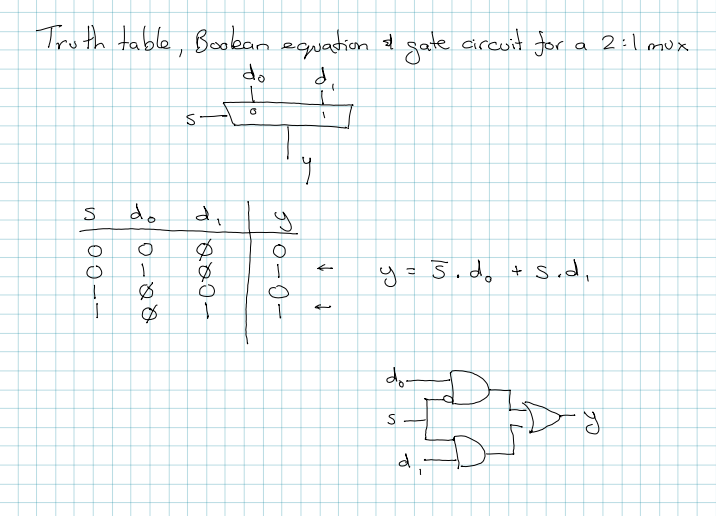 Truth table, Boolean equation & gate circuit for a 2:1 mux
d₀ d₁
s 0 1
y
s d₀ d₁ y
0 0 ∅ 0
0 1 ∅ 1 ← y = s̅.d₀ + s.d₁
1 ∅ 0 0
1 ∅ 1 1 ←
d₀
s y
d₁